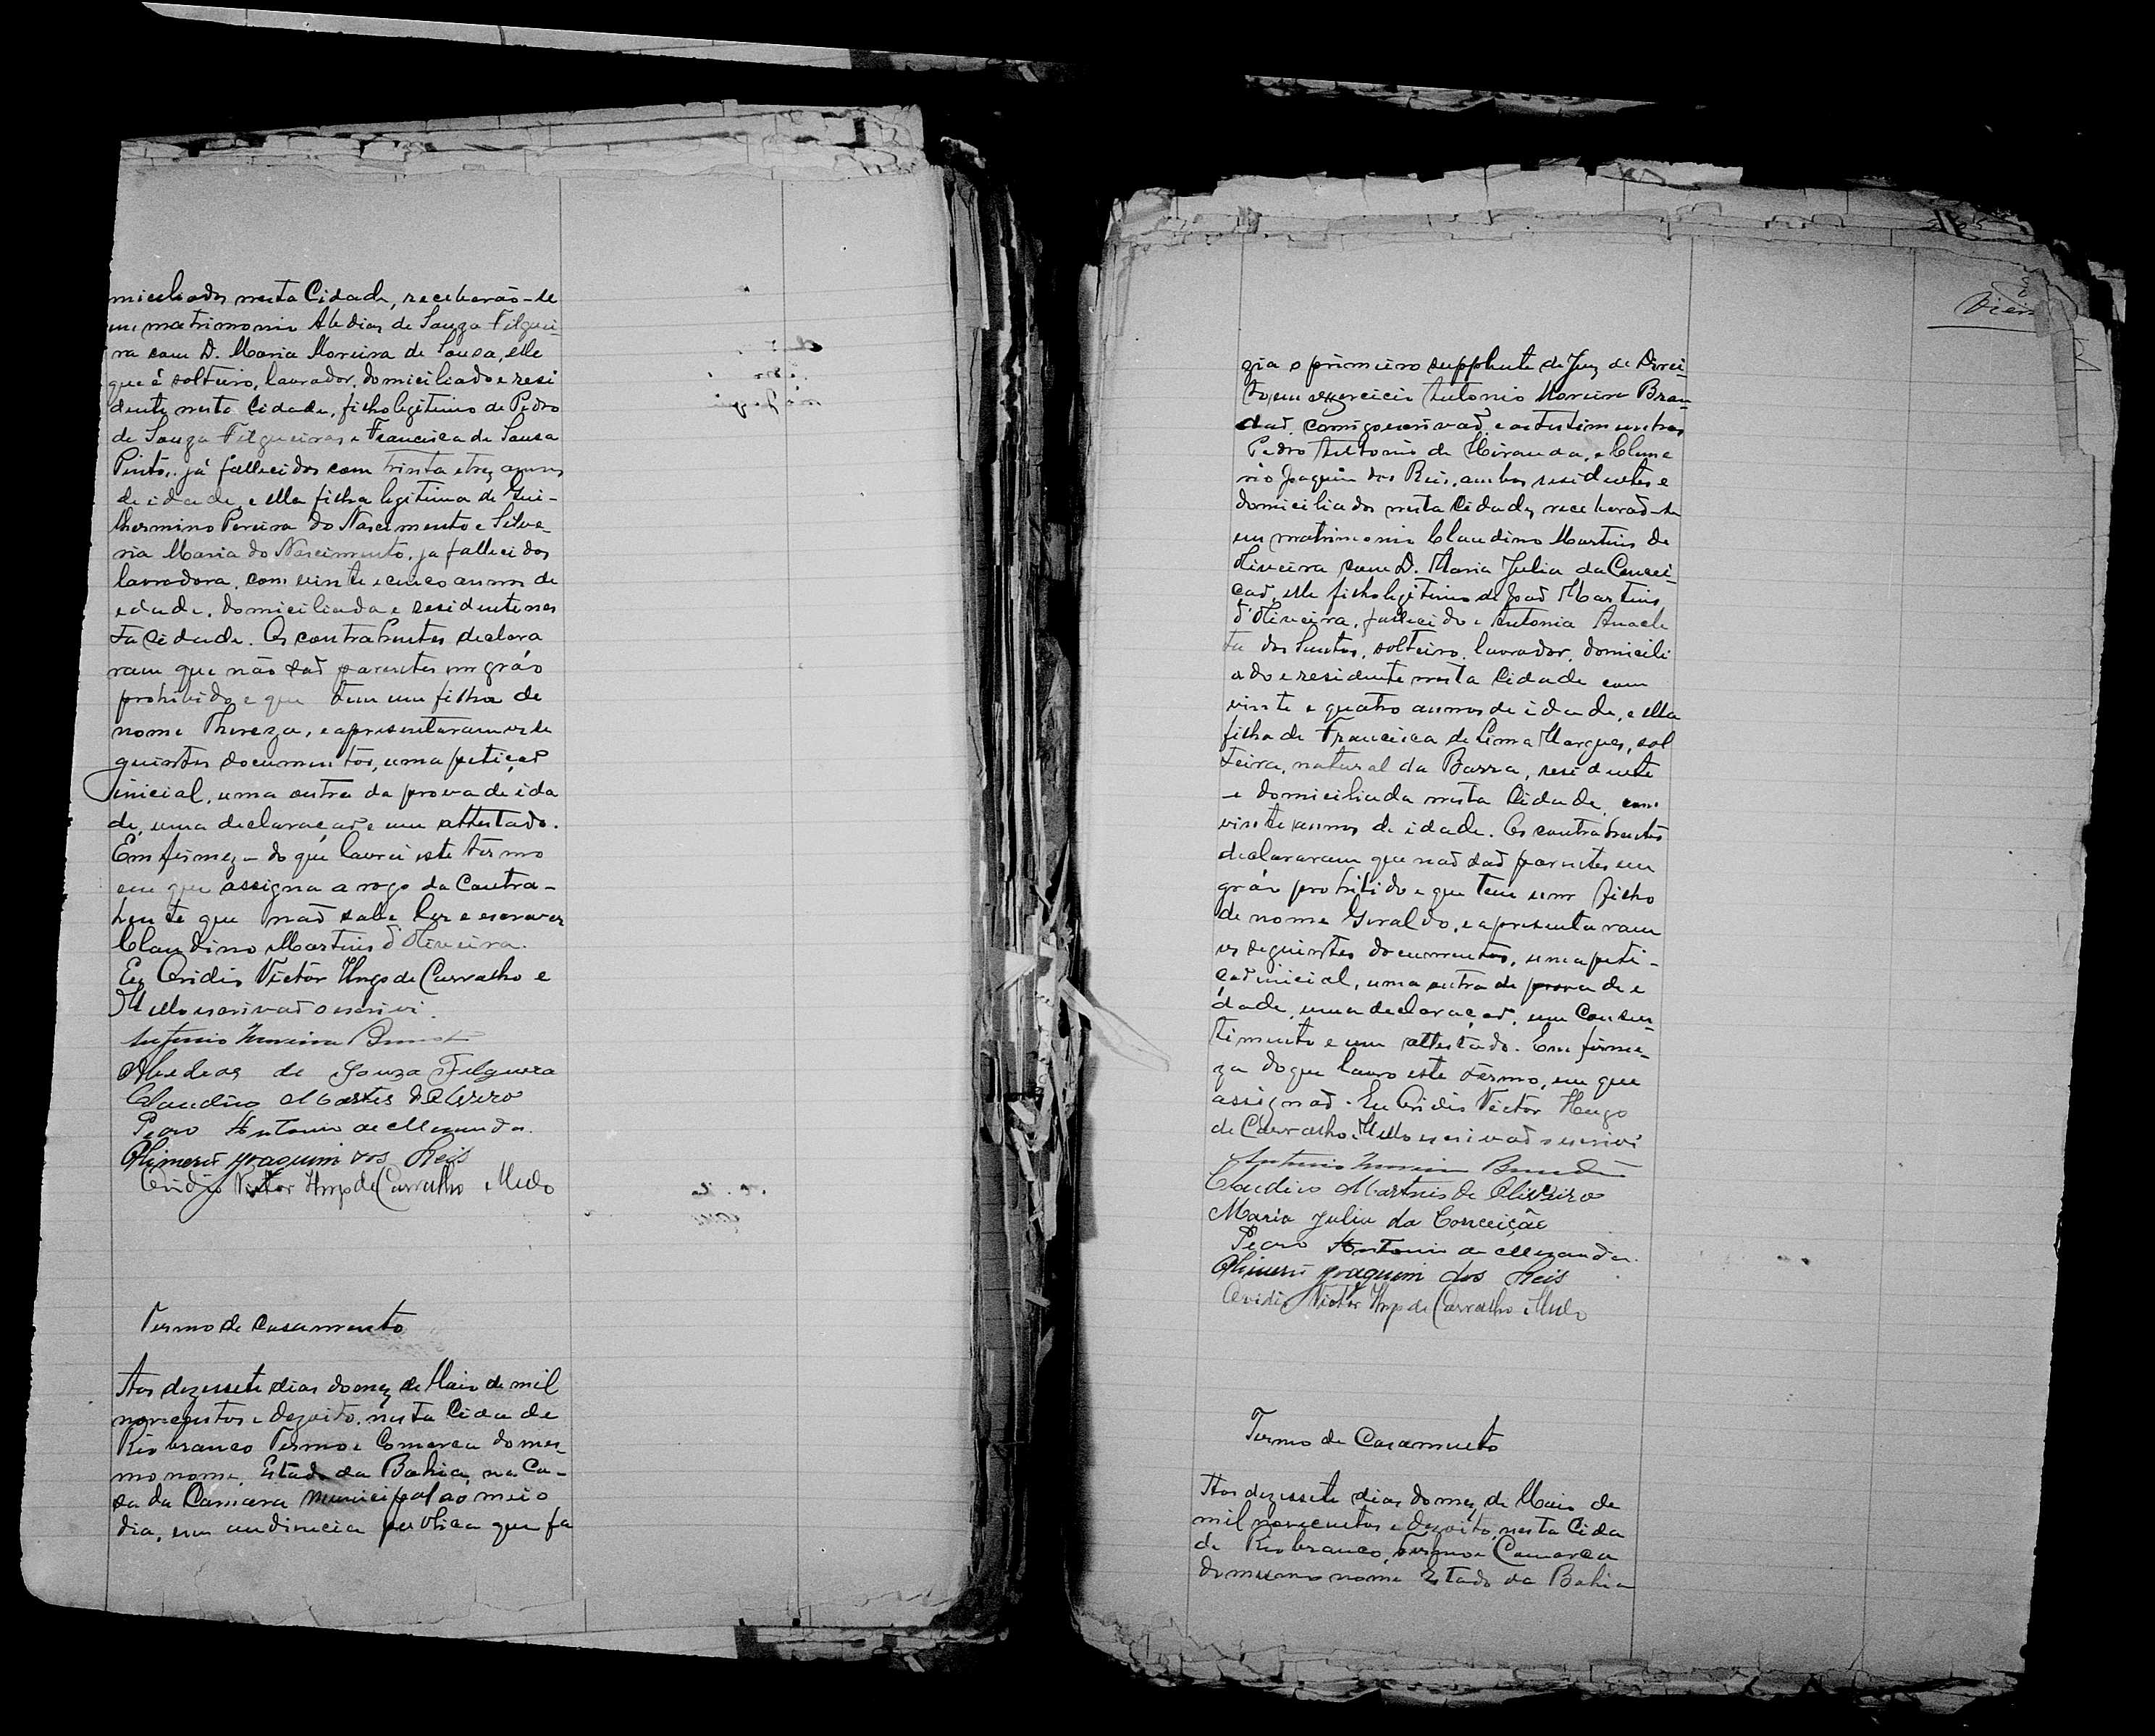 miciliados nesta Cidade, receberão-se
em matrimonio Abdias de Souza Filguei-
ra com D. Maria Moreira de Sousa, elle
que é solteiro, lavrador, domiciliado e resi
dente nesta Cidade, filho legitimo de Pedro
de Souza Filgueiras e Francisca de Sousa
Pinto, já fallecidos com trinta e trez annos
de idade, e ella filha legitima de Gui-
lhermino Pereira do Nascimento e Silve
ria Maria do Nascimento, ja fallecidos
lavradora, com vinte e cinco annos de
edade, domiciliada e residente nes
ta Cidade. Os contrahentes declara
ram que não saõ parentes em gráo
prohibido e que tem um filha de
nome Thereza, e apresentaram os se
guintes documentos, uma petiçaõ
inicial, uma outra da prova de ida
de, uma declaraçaõ e um attestado.
Em firmeza do que lavrei este termo
em que assigna a rogo da Contra-
hente que naõ sabe ler e escrever
Claudino Martins d'Oliveira.
Eu Ovidio Victor Hugo de Carvalho e
Mello escrivaõ o escrivi.
Antonio Moreira Brandão
Abedias de Souza Filgueira
Claudino Martis d'Oliveiro
Pedro Antonio de Miranda.
Olimerio Joaquim dos Reis
Ovidio Victor Hugo de Carvalho e Mello
Termo de Casamento
Aos dezessete dias do mez de Maio de mil
novecentos e dezoito, nesta Cida de
Rio branco Termo e Comarca do mes-
mo nome, Estado da Bahia, na Ca-
sa da Camara Municipal ao meio
dia, em audiencia publica que fa
Vieira
zia o primeiro supplente de Juiz de Direi-
to, em exercicio Antonio Moreira Bran-
daõ, comigo escrivaõ, e as testimunhas
Pedro Antonio de Miranda, e Clime
rio Joaquim dos Reis, ambos residentes e
domiciliados nesta Cidade, receberaõ-se
em matrimonio Claudino Martins de
Oliveira com D. Maria Julia da Concei-
çaõ, elle filho legitimo de Joaõ Martins
d'Oliveira, fallecido e Antonia Anacle
ta dos Santos, solteiro, lavrador, domicili
ado e residente nesta Cidade com
vinte e quatro annos de idade, e ella
filha de Francisca de Lima Marques, sol
teira, natural da Barra, residente
e domiciliada nesta Cidade, com
vinte annos de idade. Os contrahentes
declararam que naõ saõ parentes em
gráo prohibido e que tem um filho
de nome Geraldo, e apresentaram
os seguintes documentos, uma peti-
çaõ inicial, uma outra de prova de e
dade, uma declaraçaõ, um Consen-
timento e um attestado. Em firme-
za do que lavro este termo, em que
assignaõ. Eu Ovidio Victor Hugo
de Carvalho e Mello escrivaõ o escrivi
Antonio Moreira Brandão
Claudino Martins de Oliveiro
Maria Julia da Conceição
Pedro Antonio de Miranda.
Olimerio Joaquim dos Reis
Ovidio Victor Hugo de Carvalho e Mello
Termo de Casamento
Aos dezessete dias do mez de Maio de
mil novecentos e dezoito, nesta Cida
de Rio branco, termo e Comarca
do mesmo nome Estado da Bahia